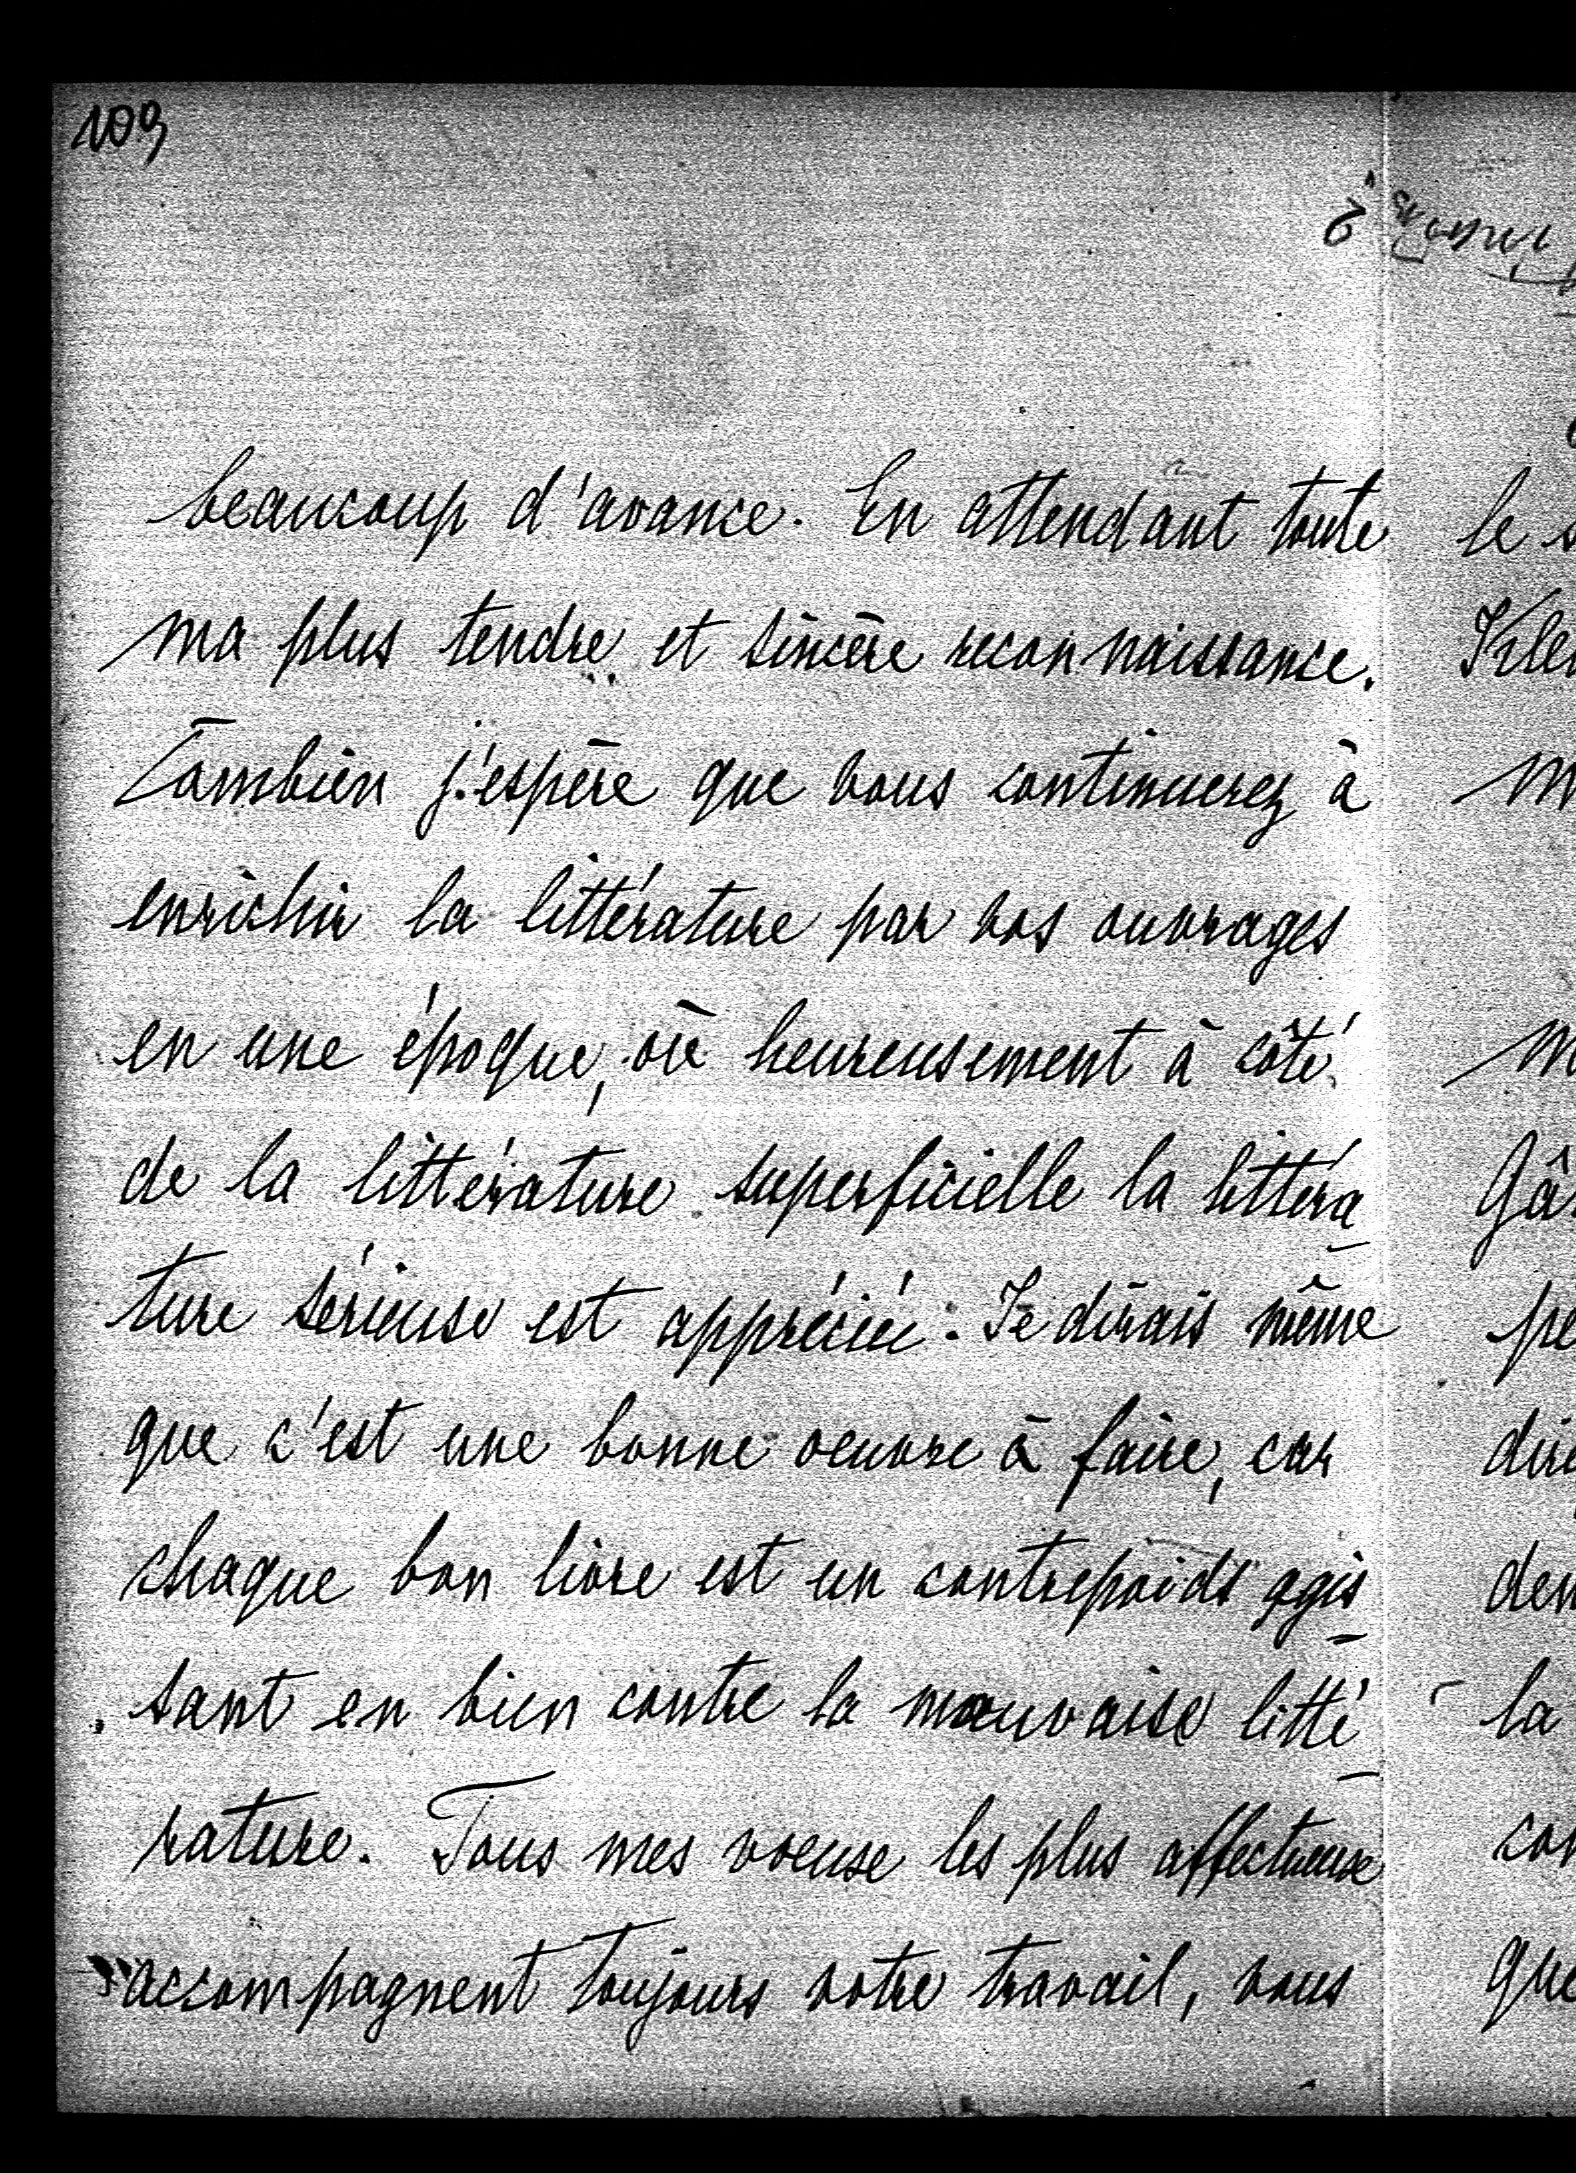 109
beaucoup d'avance. En attendant toute
ma plus tendre et sincère reconnaissance.
Combien j'espère que vous continuerez à
enrichir la littérature par vos ouvrages
en une époque, où heureusement à côté
de la littérature superficielle la littéra-
ture sérieuse est appréciée. Je dirais même
que c'est une bonne oeuvre à faire, car
chaque bon livre est un contrepoids agis-
sant en bien contre la mauvaise litté-
rature. Tous mes voeux les plus affectueux
accompagnent toujours votre travail, vous
le
la
que